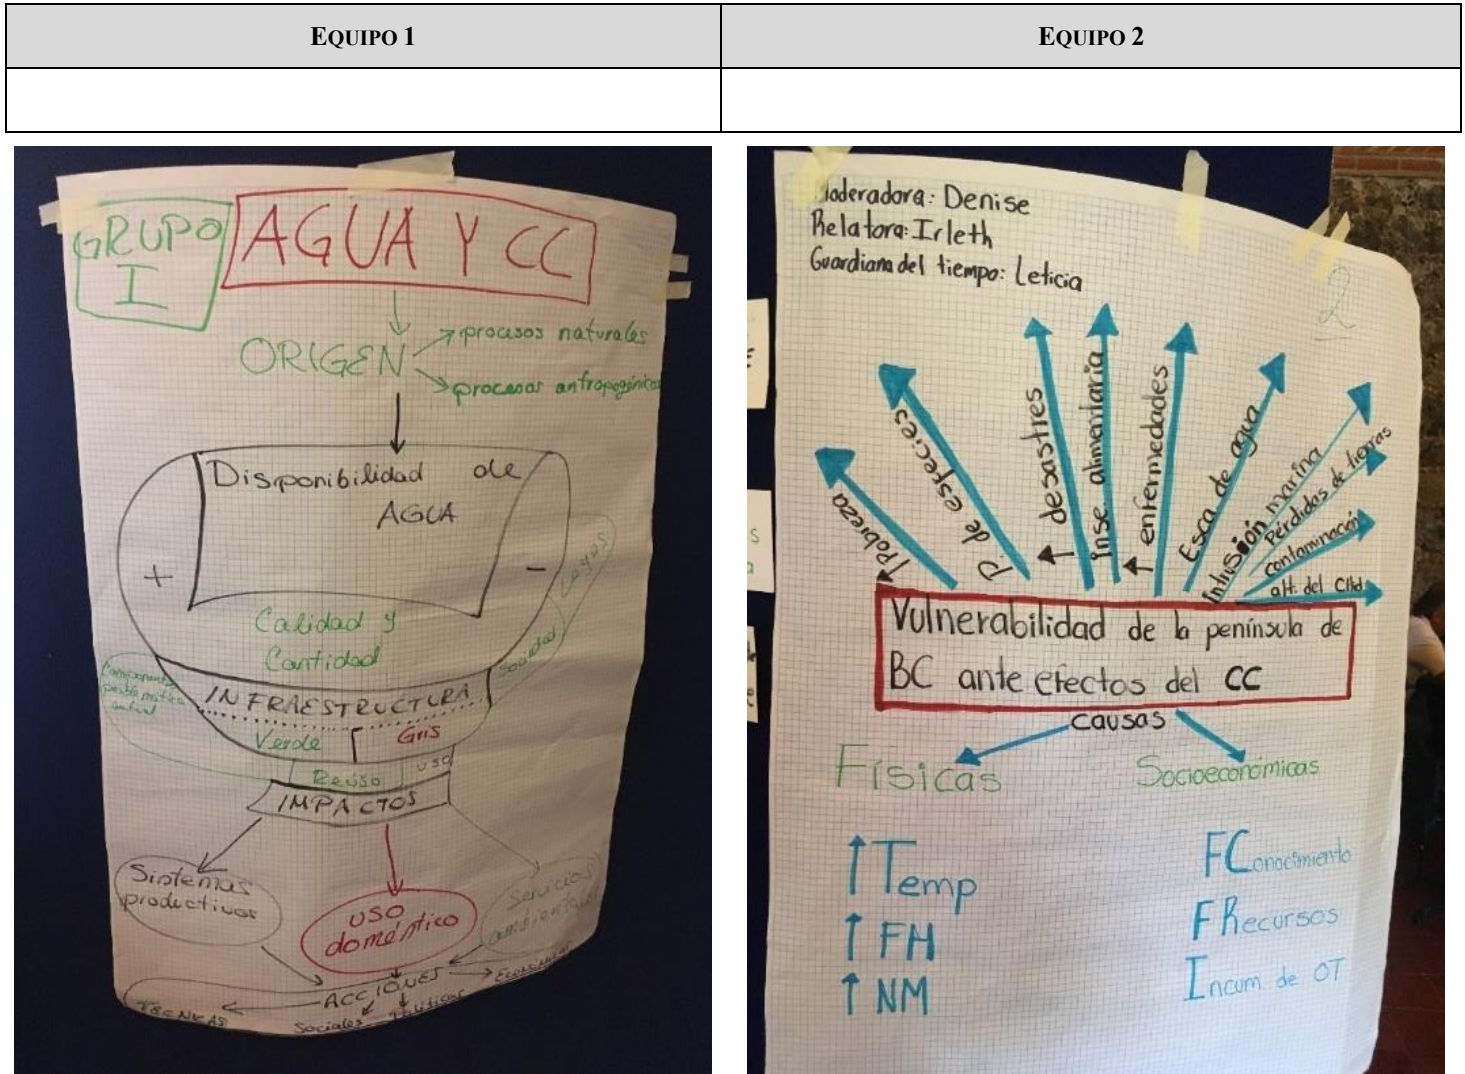 EQUIPO 1
EQUIPO 2
GRUPO
I
AGUA Y CC
ORIGEN
procesos naturales
procesos antropogénicos
Disponibilidad de
AGUA
+
-
Calidad y
Cantidad
Sociedad
INFRAESTRUCTURA
Verde
Gris
Reúso
uso
IMPACTOS
Sistemas
productivos
uso
doméntico
Servicios
ACCIONES
TÉCNICAS
Sociales
Políticas
Moderadora: Denise
Relatora: Irleth
Guardiana del tiempo: Leticia
2
↑Pobreza
P. de especies
↑ desastres
Inse alimentaria
↑ enfermedades
Esca de agua
Intrusión marina
Pérdidas de tierras
contaminación
alt. del
Vulnerabilidad de la península de
BC ante efectos del CC
causas
Físicas
Socioeconómicas
↑ Temp
↑ FH
↑ NM
FConocimiento
FRecursos
Incum. de OT